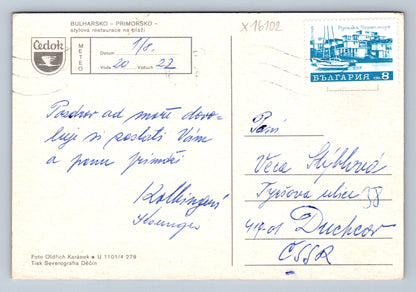 BULHARSKO - PRIMORSKO -
stylová restaurace na pláži
Čedok
METEO
Datum 1/8.
Voda 20 Vzduch 22
X 16102
БЪЛГАРИЯ ст. 8
Pozdrav od moře dovo-
luje si poslati Vám
a panu
Paní
Věra
Tyršova ulice 38
417 01 Duchcov
ČSSR
Foto Oldřich Karásek ● U 1101/4 279
Tisk Severografia Děčín